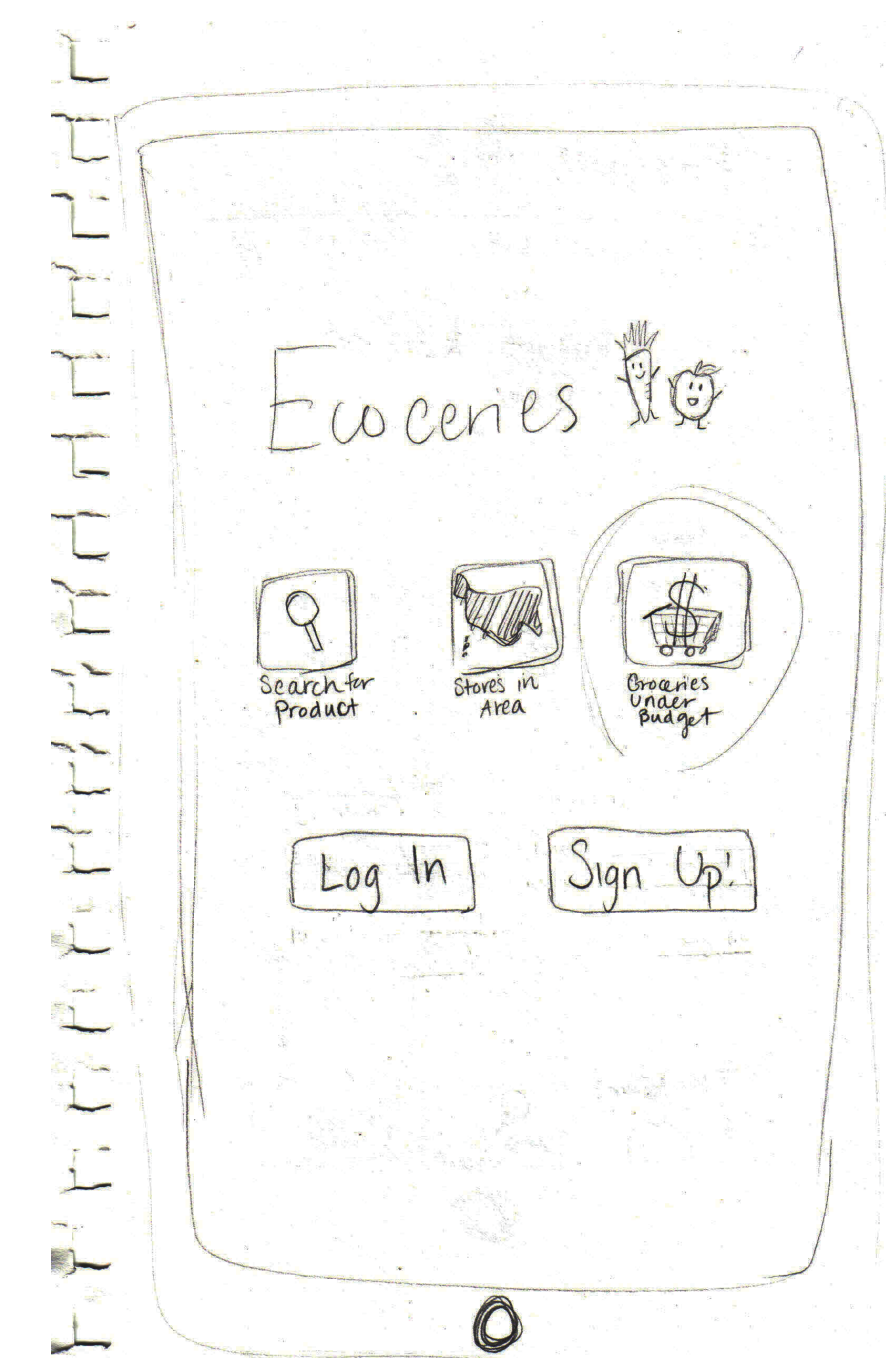 Ecoceries
Search for
Product
Stores in
Area
Groceries
Under
Budget
$
Log In
Sign Up!